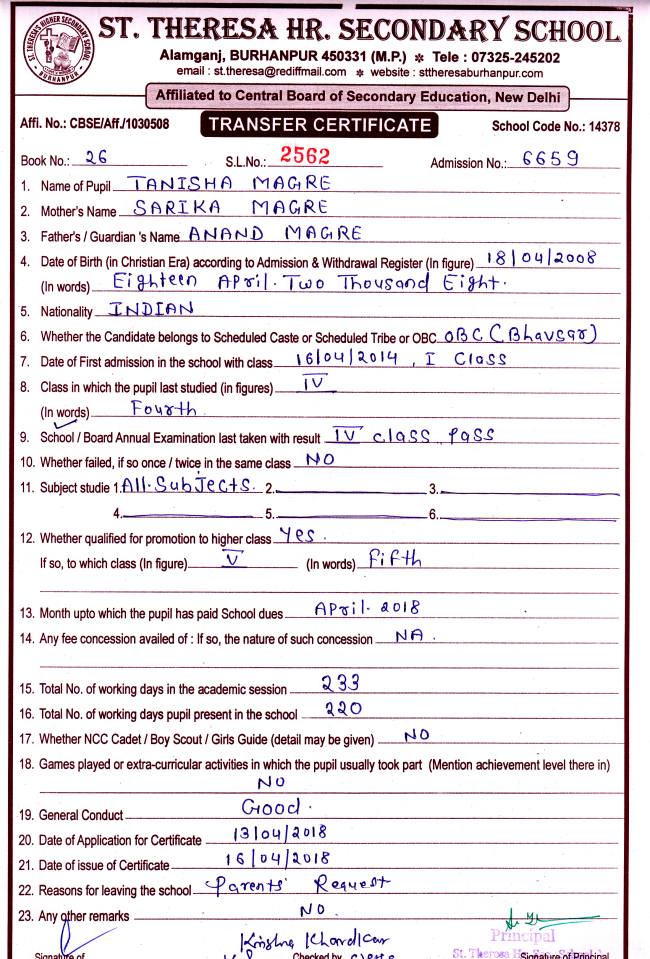 ST. THERESA HR. SECONDARY SCHOOL
ST. THERESA'S HIGHER SECONDARY SCHOOL
BURHANPUR
Alamganj, BURHANPUR 450331 (M.P.) * Tele : 07325-245202
email : st.theresa@rediffmail.com * website : sttheresaburhanpur.com
Affiliated to Central Board of Secondary Education, New Delhi
Affi. No.: CBSE/Aff./1030508 TRANSFER CERTIFICATE School Code No.: 14378
Book No.: 26 S.L.No.: 2562 Admission No.: 6659
1. Name of Pupil TANISHA MAGRE
2. Mother's Name SARIKA MAGRE
3. Father's / Guardian 's Name ANAND MAGRE
4. Date of Birth (in Christian Era) according to Admission & Withdrawal Register (In figure) 18/04/2008
(In words) Eighteen April. Two Thousand Eight.
5. Nationality INDIAN
6. Whether the Candidate belongs to Scheduled Caste or Scheduled Tribe or OBC OBC (Bhavsar)
7. Date of First admission in the school with class 16/04/2014, I Class
8. Class in which the pupil last studied (in figures) IV
(In words) Fourth
9. School / Board Annual Examination last taken with result IV class pass
10. Whether failed, if so once / twice in the same class NO
11. Subject studie 1. All. Subjects. 2. 3.
4. 5. 6.
12. Whether qualified for promotion to higher class Yes.
If so, to which class (In figure) V (In words) Fifth
13. Month upto which the pupil has paid School dues April. 2018
14. Any fee concession availed of : If so, the nature of such concession NA.
15. Total No. of working days in the academic session 233
16. Total No. of working days pupil present in the school 220
17. Whether NCC Cadet / Boy Scout / Girls Guide (detail may be given) NO
18. Games played or extra-curricular activities in which the pupil usually took part (Mention achievement level there in)
NO
19. General Conduct Good.
20. Date of Application for Certificate 13/04/2018
21. Date of issue of Certificate 16/04/2018
22. Reasons for leaving the school Parents' Request
23. Any other remarks NO.
Krishna Khandkar
Principal
Signature of Checked by St. Theresa Hr. Sec. Signature of Principal